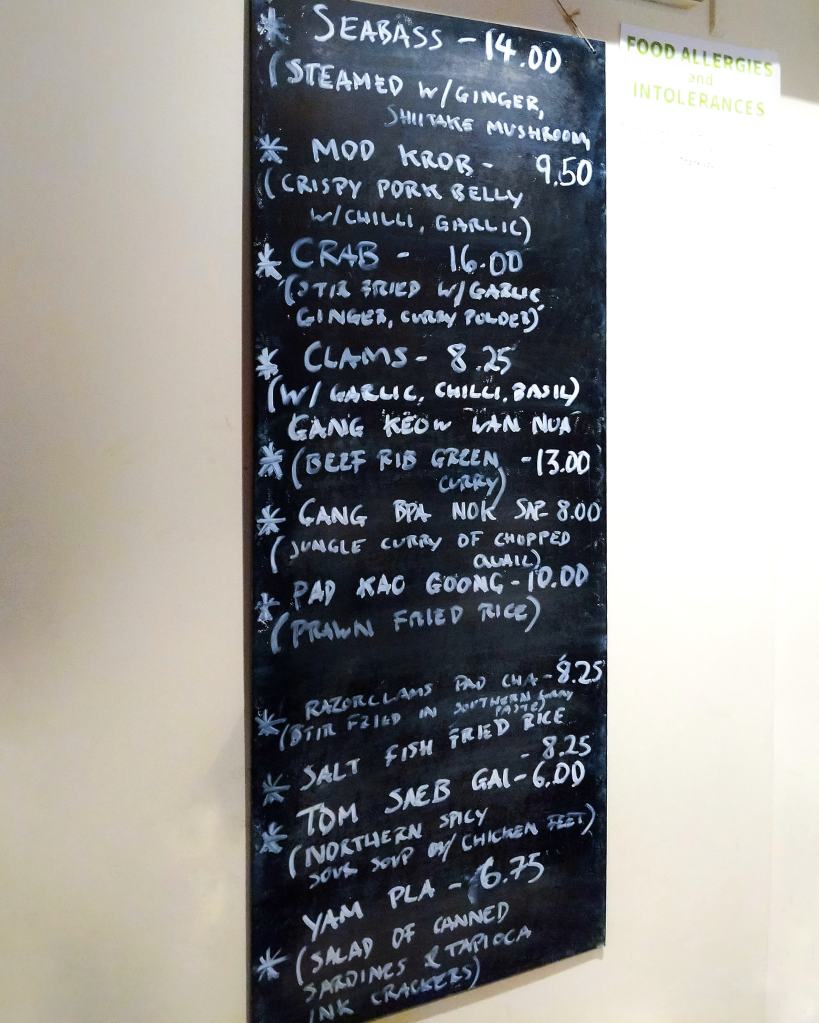 * SEABASS - 14.00
(STEAMED W/GINGER,
SHIITAKE MUSHROOM)
* MOO KROB - 9.50
(CRISPY PORK BELLY
W/CHILLI, GARLIC)
* CRAB - 16.00
(STIR FRIED W/GARLIC
GINGER, CURRY POWDER)
* CLAMS - 8.25
(W/ GARLIC, CHILLI, BASIL)
GANG KEOW WAN NUA
* (BEEF RIB GREEN - 13.00
CURRY)
* GANG BPA NOK SAP- 8.00
(JUNGLE CURRY OF CHOPPED
QUAIL)
* PAD KAO GOONG - 10.00
(PRAWN FRIED RICE)
* RAZORCLAMS PAD CHA - 8.25
(STIR FRIED IN SOUTHERN CURRY
PASTE)
* SALT FISH FRIED RICE
- 8.25
* TOM SAEB GAI - 6.00
(NORTHERN SPICY
SOUR SOUP W/ CHICKEN FEET)
YAM PLA - 6.75
* (SALAD OF CANNED
SARDINES & TAPIOCA
INK CRACKERS)
FOOD ALLERGIES
and
INTOLERANCES